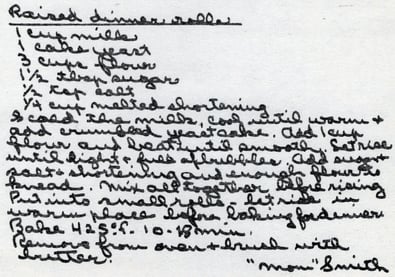 Raised dinner rolls
1 cup milk
1 cake yeast
3 cups flour
1 1/2 tbsp sugar
1/2 tsp salt
1/4 cup melted shortening
Scald the milk, cool until warm +
add crumbled yeast cake. Add 1 cup
flour and beat until smooth. Set rise
until light + full of bubbles. Add sugar
salt + shortening and enough flour to
knead. Mix all together before rising
Put into small rolls - let rise in
warm place before baking for dinner
Bake 425° f. 10-18 min.
Remove from oven + brush with
butter.
"Mom" Smith